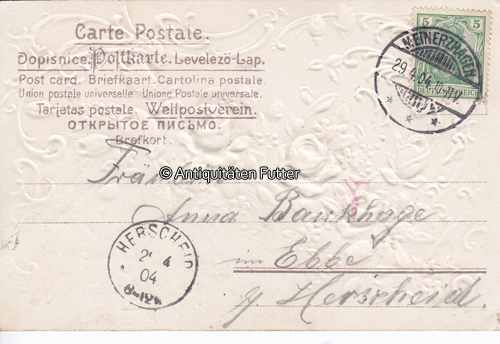 Carte Postale.
Dopisnice. Postkarte. Levelező-Lap.
Post card. Briefkaart. Cartolina postale.
Union postale universelle. Unione Postale universale.
Tarjetas postale. Weltpostverein.
ОТКРЫТОЕ ПИСЬМО.
Brefkort.
5 5
MEINERZHAGEN
29.4.04.
REICH
© Antiquitäten Futter
Fräulein
Anna Bankhage
im Ebbe
b/ Herscheid.
HERSCHEID
4
04